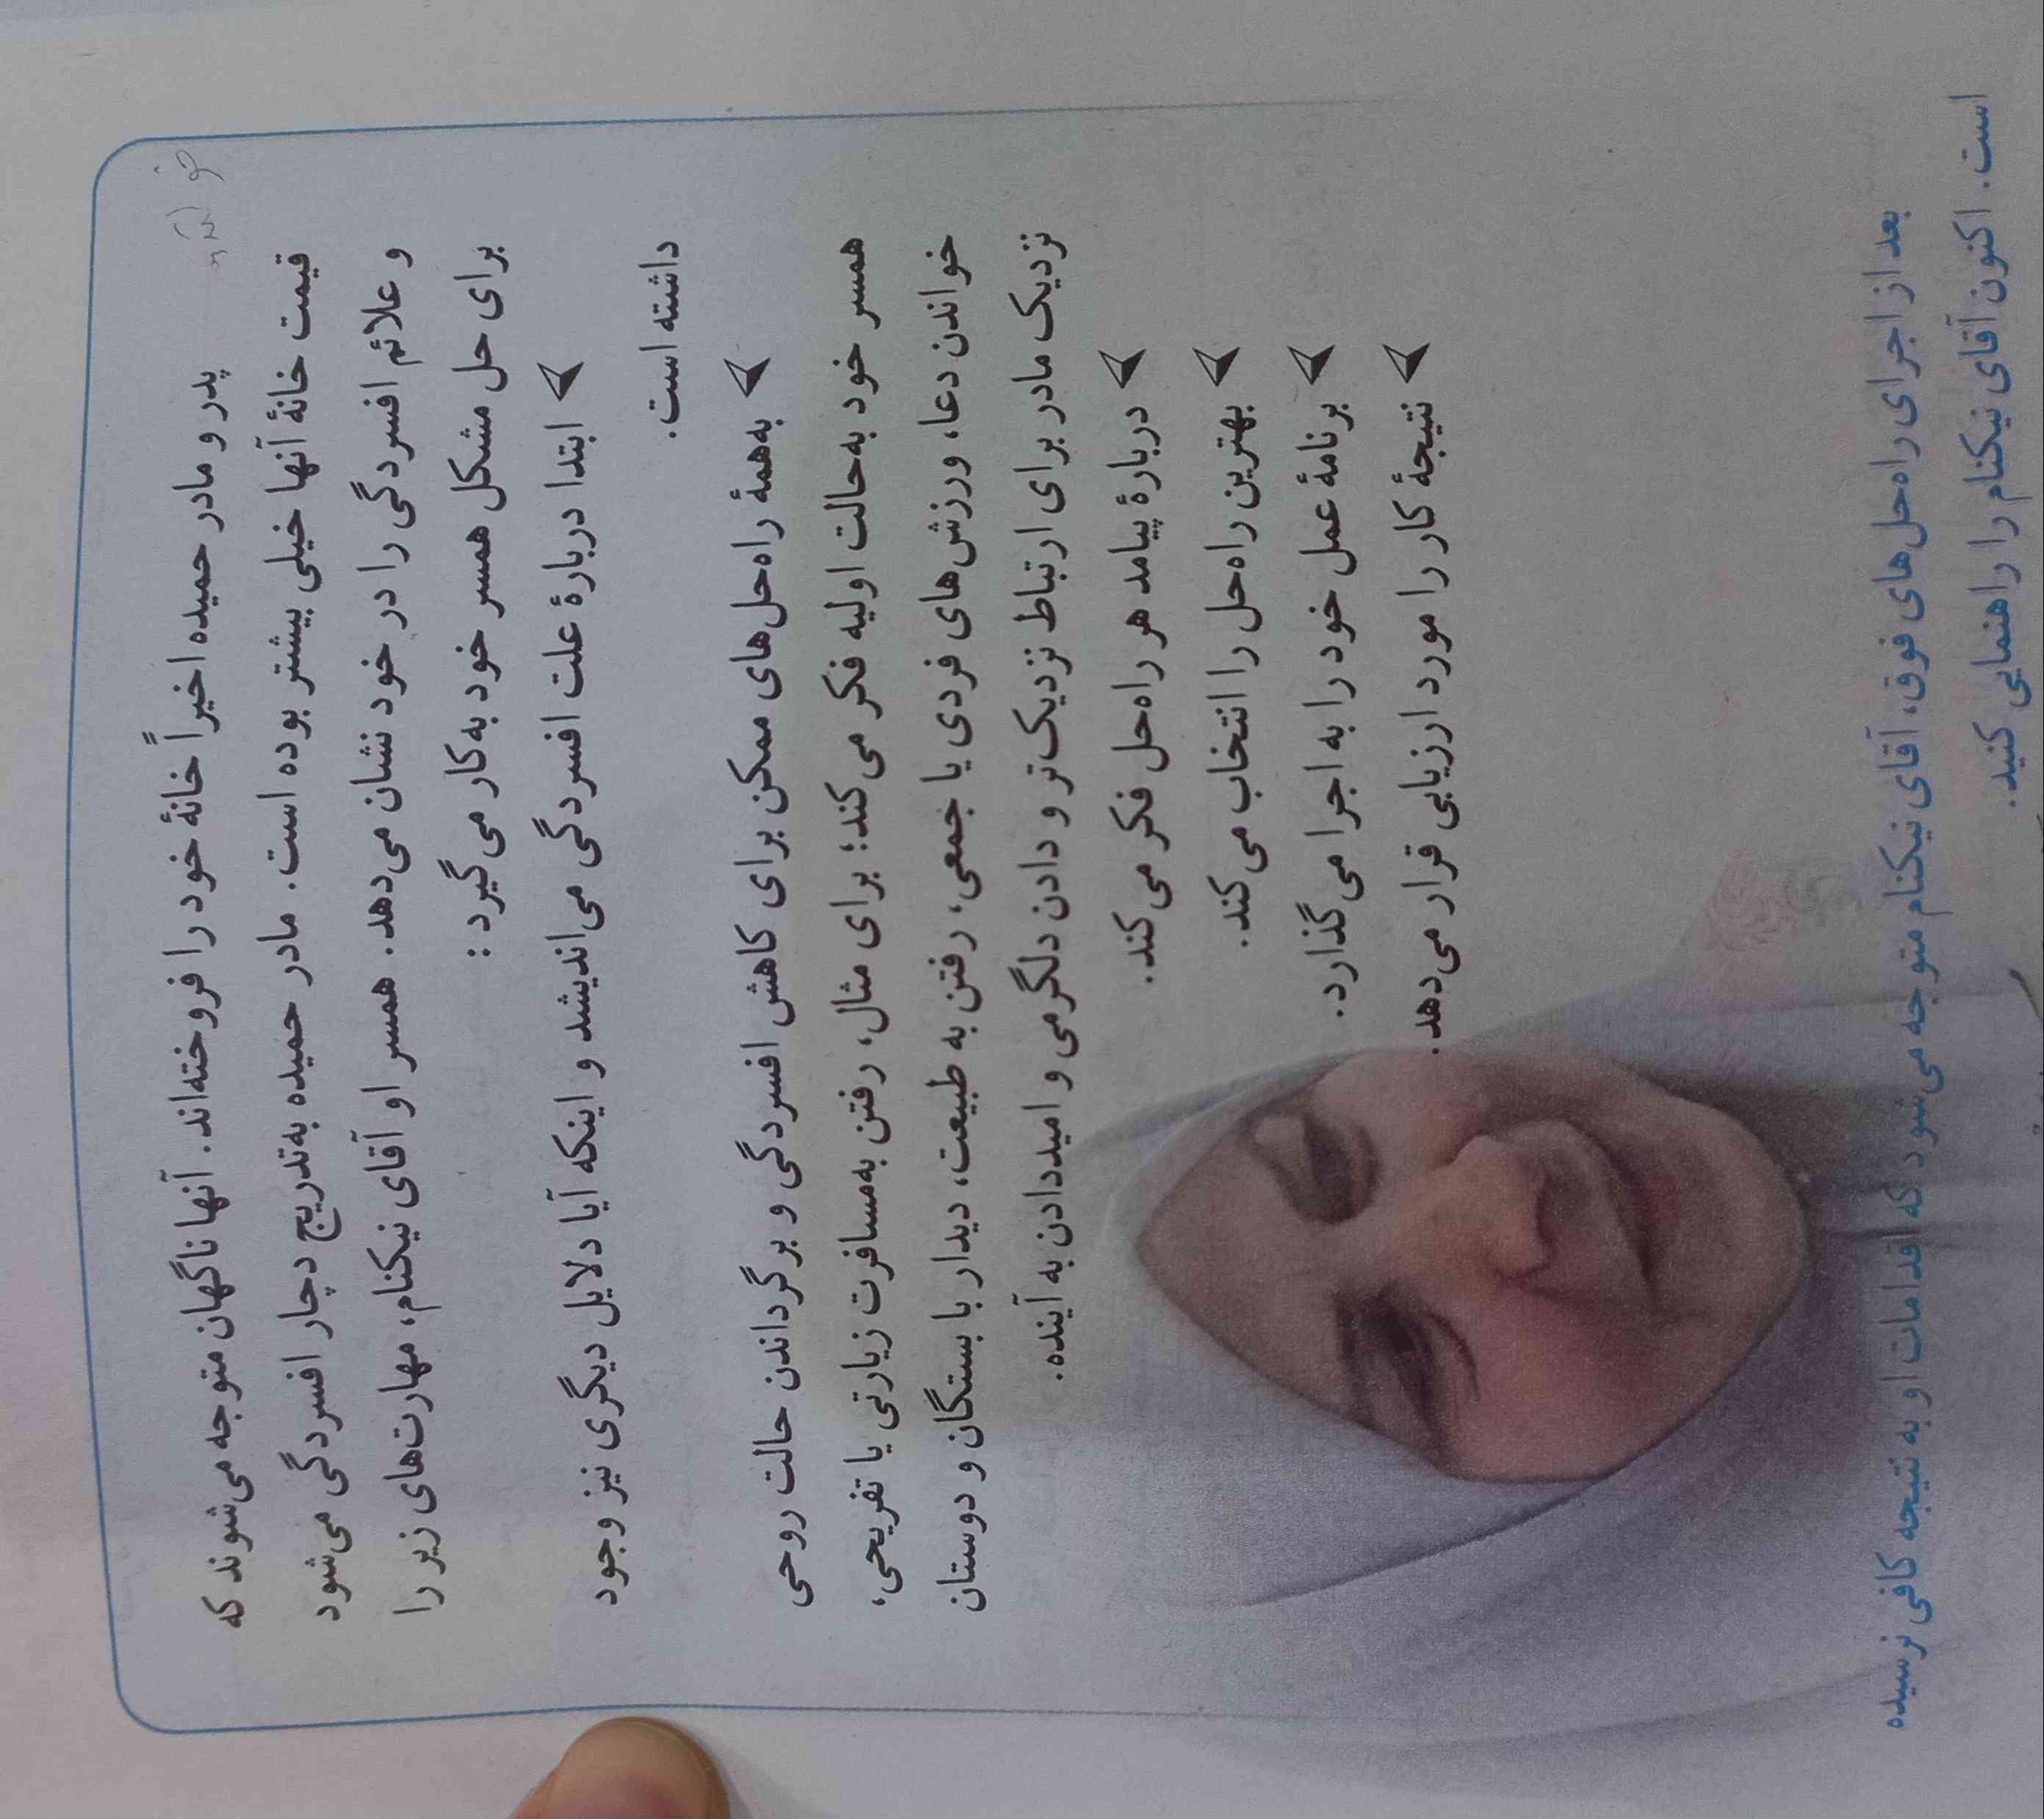 پدر و مادر حمیده اخیراً خانهٔ خود را فروخته‌اند. آنها ناگهان متوجه می‌شوند که
قیمت خانهٔ آنها خیلی بیشتر بوده است. مادر حمیده به‌تدریج دچار افسردگی می‌شود
و علائم افسردگی را در خود نشان می‌دهد. همسر او آقای نیکنام، مهارت‌های زیر را
برای حل مشکل همسر خود به‌کار می‌گیرد:
ابتدا دربارهٔ علت افسردگی می‌اندیشد و اینکه آیا دلایل دیگری نیز وجود
داشته است.
به‌همهٔ راه‌حل‌های ممکن برای کاهش افسردگی و برگرداندن حالت روحی
همسر خود به‌حالت اولیه فکر می‌کند؛ برای مثال، رفتن به‌مسافرت زیارتی یا تفریحی،
خواندن دعا، ورزش‌های فردی یا جمعی، رفتن به طبیعت، دیدار با بستگان و دوستان
نزدیک مادر برای ارتباط نزدیک‌تر و دادن دلگرمی و امیددادن به آینده.
دربارهٔ پیامد هر راه‌حل فکر می‌کند.
بهترین راه‌حل را انتخاب می‌کند.
برنامهٔ عمل خود را به اجرا می‌گذارد.
نتیجهٔ کار را مورد ارزیابی قرار می‌دهد.
بعد از اجرای راه‌حل‌های فوق، آقای نیکنام متوجه می‌شود که اقدامات او به نتیجه کافی نرسیده
است. اکنون آقای نیکنام را راهنمایی کنید.